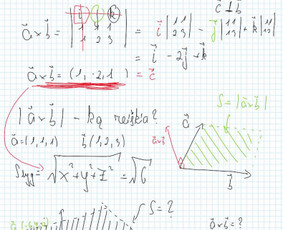 c⃗ ⊥ b⃗
a⃗ × b⃗ = | i j k; 1 1 1; 1 2 3 | = i⃗ |1 1; 2 3| - j⃗ |1 1; 1 3| + k⃗ |1 1; 1 2|
= i⃗ - 2j⃗ + k⃗
a⃗ × b⃗ = (1, -2, 1) = c⃗
|a⃗ × b⃗| - ką reiškia?
S = |a⃗ × b⃗|
a⃗ = (1, 1, 1) b⃗ (1, 2, 3)
a⃗
a⃗×b⃗
= √x² + y² + z² = √6
b⃗
S = ?
a⃗ × b⃗ = ?